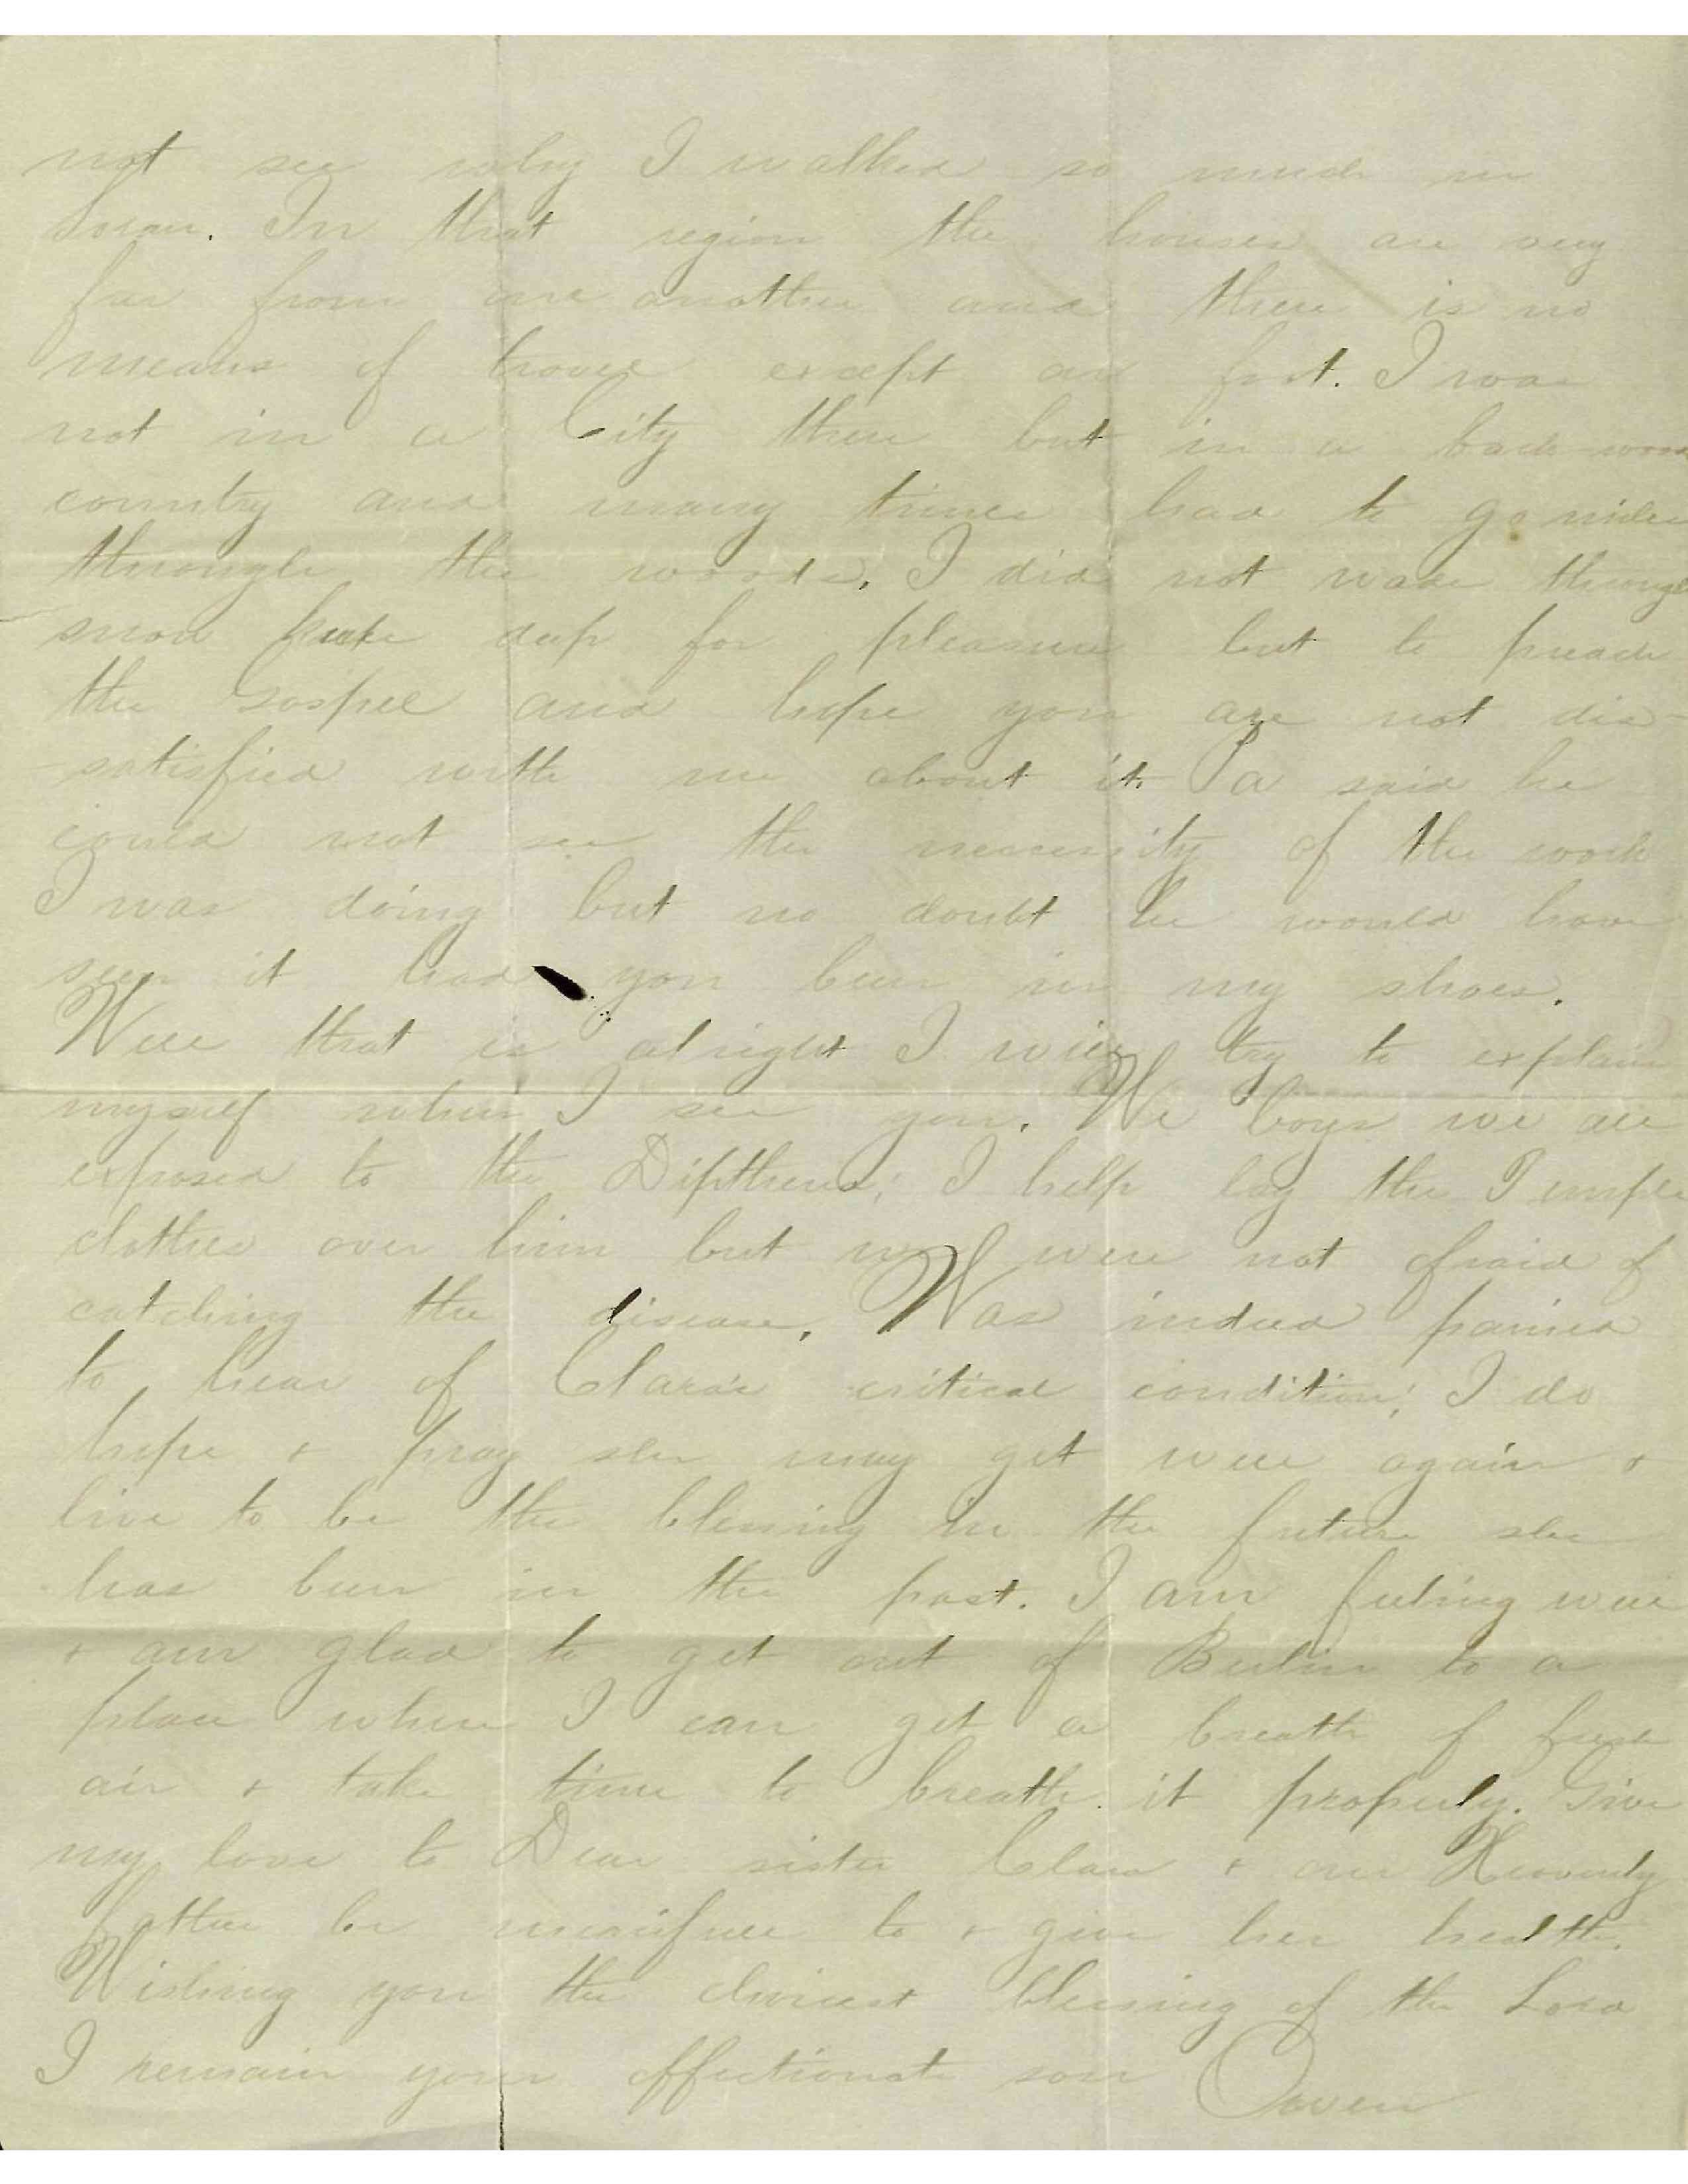 not see why I walked so much in
Soran. In that region the houses are very
far from one another and there is no
means of travel except on foot. I was
not in a City there but in a back-woods
country and many times had to go miles
through the woods. I did not wade through
snow knee deep for pleasure but to preach
the Gospel and hope you are not dis-
satisfied with me about it. Pa said he
could not see the necessity of the work
I was doing but no doubt he would have
seen it had you been in my shoes.
Well that is alright I will try to explain
myself when I see you. We boys we all
exposed to the Diptheria; I help lay the Temple
clothes over him but we were not afraid of
catching the disease. Was indeed pained
to hear of Clara's critical condition; I do
hope + pray she may get well again +
live to be the blessing in the future she
has been in the past. I am feeling well
+ am glad to get out of Berlin to a
place where I can get a breath of fresh
air + take time to breathe it properly. Give
my love to Dear sister Clara + our Heavenly
father be merciful to + give her health.
Wishing you the choicest blessing of the Lord
I remain your affectionate son Owen